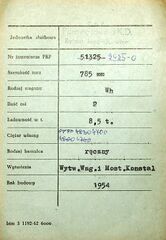 Jednostka służbowa
Nr inwentarza PKP 51325-2425-0
Szerokość toru 785 mm
Rodzaj wagonu Wh
Ilość osi 2
Ładowność w t. 8,5 t.
Ciężar własny
Rodzaj hamulca ręczny
Wytwórnia Wytw.Wag.i Most.Konstal
Rok budowy 1954